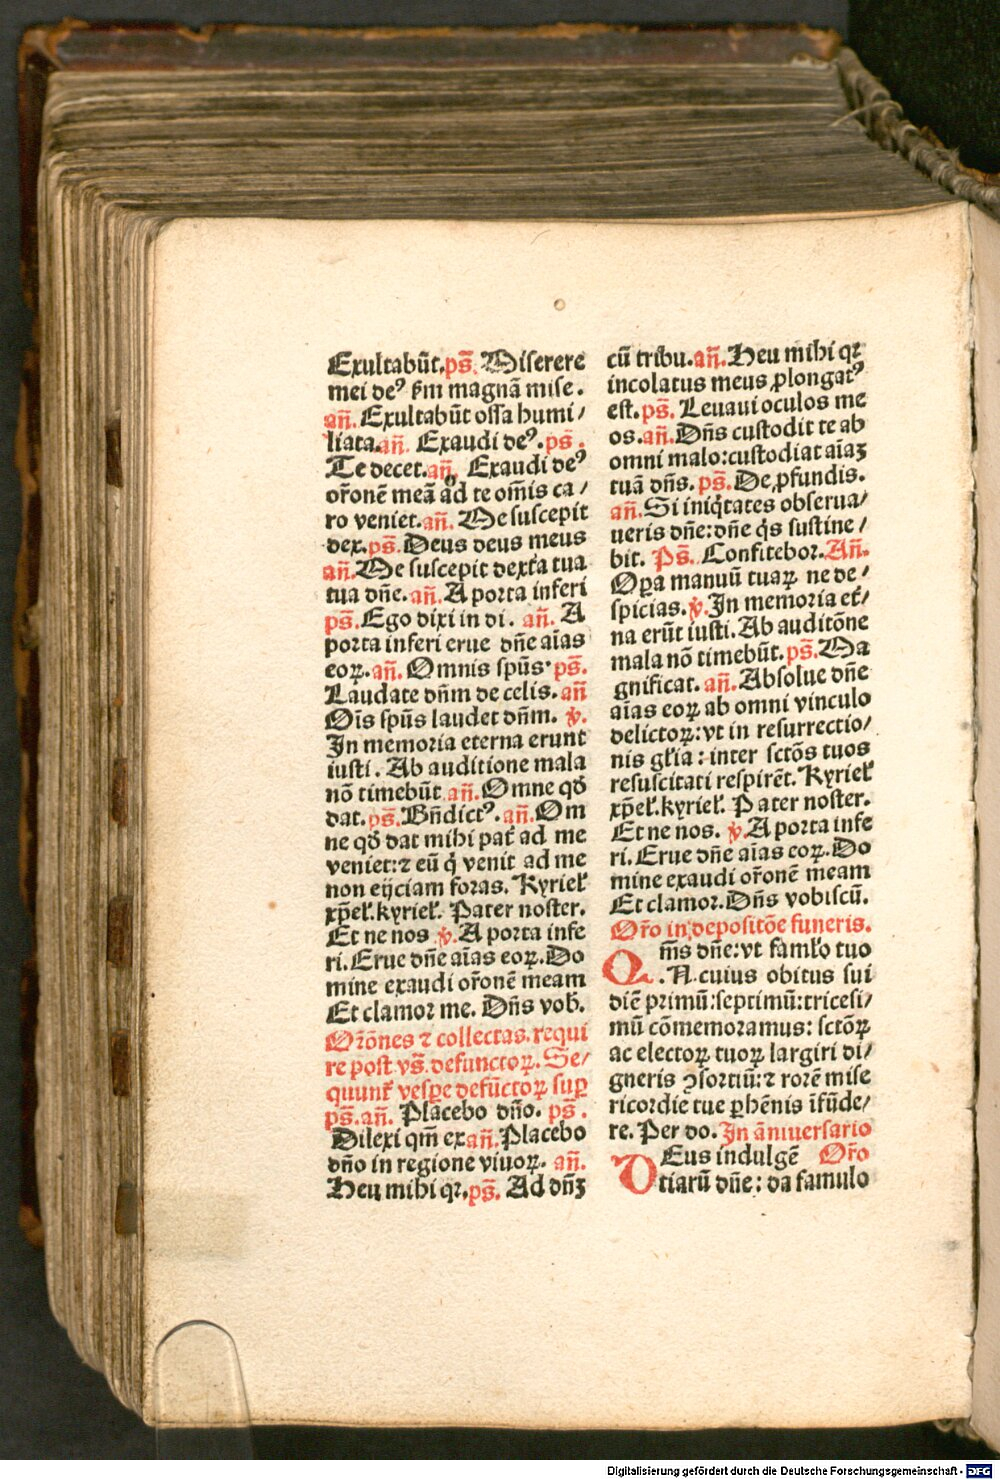 Exultabūt.ps̄. Miserere
mei deꝰ s̄m magnā mise.
an̄. Exultabūt ossa humi/
liata.an̄. Exaudi deꝰ.ps̄.
Te decet.an̄. Exaudi deꝰ
or̄onē meā ad te om̄is ca/
ro veniet.an̄. Me suscepit
dex.ps̄. Deus deus meus
an̄.Me suscepit dext̄a tua
tua dn̄e.an̄. A porta inferi
ps̄.Ego dixi in di. an̄. A
porta inferi erue dn̄e aīas
eoꝝ.an̄. Omnis sp̄us.ps̄.
Laudate dn̄m de celis.an̄
Oīs sp̄us laudet dn̄m. ℣.
In memoria eterna erunt
iusti. Ab auditione mala
nō timebūt.an̄. Omne qd̄
dat.ps̄. Bn̄dictꝰ. an̄. Om
ne qd̄ dat mihi pat̄ ad me
veniet:⁊ eū q̄ venit ad me
non eijciam foras. Kyriel̄
xp̄el̄.kyriel̄. Pater noster.
Et ne nos ℣. A porta infe
ri. Erue dn̄e aīas eoꝝ. Do
mine exaudi or̄onē meam
Et clamor me. Dn̄s vob̄.
Or̄ōnes ⁊ collectas.requi
re post vs̄.defunctoꝝ. Se/
quunt̄ vesꝑe defūctoꝝ suꝑ
ps̄.an̄. Placebo dn̄o. ps̄.
Dilexi qm̄ ex an̄. Placebo
dn̄o in regione viuoꝝ. an̄.
Heu mihi qꝛ.ps̄. Ad dn̄ʒ
cū tribu.an̄.Heu mihi qꝛ
incolatus meus ꝓlongatꝰ
est. ps̄. Leuaui oculos me
os.an̄.Dn̄s custodit te ab
omni malo:custodiat aīaʒ
tuā dn̄s. ps̄. De ꝓfundis.
an̄.Si iniq̄tates obserua/
ueris dn̄e:dn̄e q̄s sustine/
bit. Ps̄. Confitebor.An̄.
Oꝑa manuū tuaꝝ ne de/
spicias.℣.In memoria et̄/
na erūt iusti. Ab auditōne
mala nō timebūt.ps̄.Ma
gnificat. an̄.Absolue dn̄e
aīas eoꝝ ab omni vinculo
delictoꝝ:vt in resurrectio/
nis gl̄ia:inter sctōs tuos
resuscitati respirēt. Kyriel̄
xp̄el̄.kyriel̄. Pater noster.
Et ne nos. ℣.A porta infe
ri. Erue dn̄e aīas eoꝝ. Do
mine exaudi or̄onē meam
Et clamor. Dn̄s vobiscū.
Or̄o in depositōe funeris.
Qm̄s dn̄e:vt faml̄o tuo
.N.cuius obitus sui
diē primū:septimū:tricesi/
mū cōmemoramus: sctōꝝ
ac electoꝝ tuoꝝ largiri di/
gneris ꝯsortiū:⁊ rorē mise
ricordie tue ꝑhēnis īfūde/
re. Per do. In āniuersario
DEus indulgē Or̄o
tiarū dn̄e: da famulo
Digitalisierung gefördert durch die Deutsche Forschungsgemeinschaft - DFG